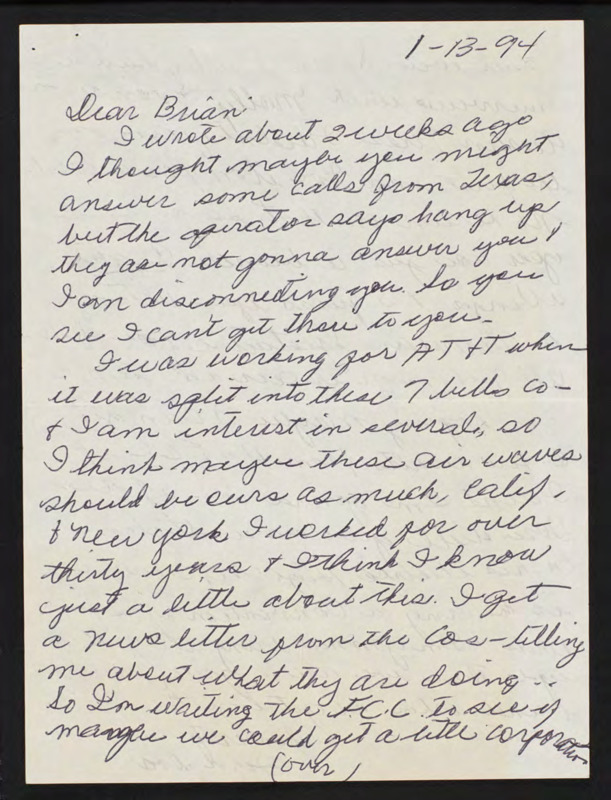 1-13-94
Dear Brian
I wrote about 2 weeks ago
I thought maybe you might
answer some calls from Texas,
but the operator says hang up
they are not gonna answer you!
I am disconnecting you. So you
see I can't get thru to you-
I was working for AT&T when
it was split into these 7 bells co-
& I am interest in several, so
I think maybe these air waves
should be ours as much, Calif,
& New York I worked for over
thirty years & I think I know
just a little about this. I get
a news letter from the Cos-telling
me about what they are doing..
So I'm writing the F.C.C. to see if
maybe we could get a little corporation
(over)